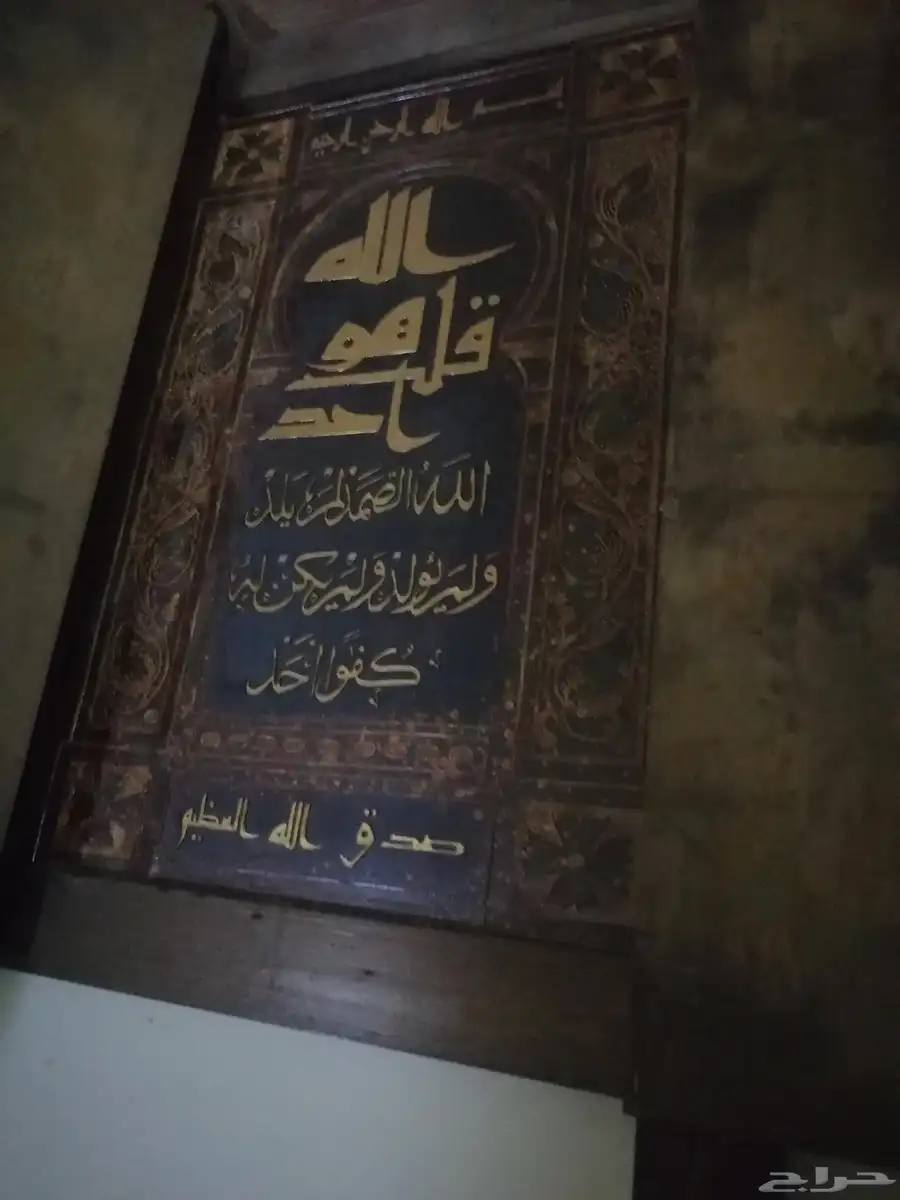 بسم الله الرحمن الرحيم
الله
قل هو
احد
اللَّهُ الصَّمَدُ لَمْ يَلِدْ
وَلَمْ يُولَدْ وَلَمْ يَكُنْ لَهُ
كُفُوًا أَحَدٌ
صدق الله العظيم
حراج